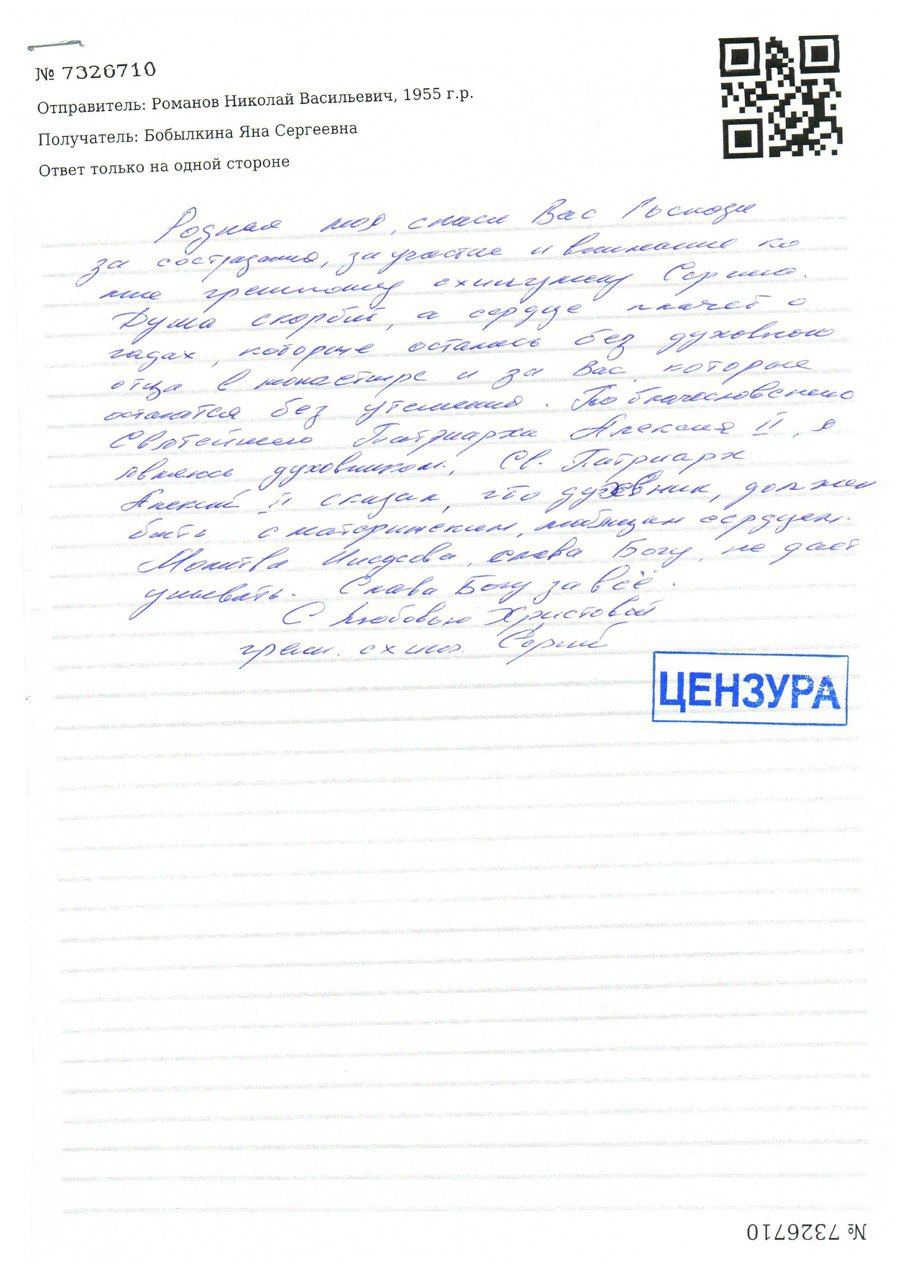 № 7326710
Отправитель: Романов Николай Васильевич, 1955 г.р.
Получатель: Бобылкина Яна Сергеевна
Ответ только на одной стороне
Родная моя, спаси Вас Господи
за сострадание, за участие и внимание ко
мне грешному схиигумену Сергию.
Душа скорбит, а сердце плачет о
чадах, которые остались без духовного
отца в монастыре и за Вас, которые
остаются без утешения. По благословению
Святейшего Патриарха Алексия II, я
являюсь духовником. Св. Патриарх
Алексий II сказал, что духовник, должен
быть с материнским, любящим сердцем.
Молитва Иисусова, слава Богу, не даёт
унывать. Слава Богу за всё.
С любовью Христовой
греш. схииг. Сергий
ЦЕНЗУРА
№ 7326710